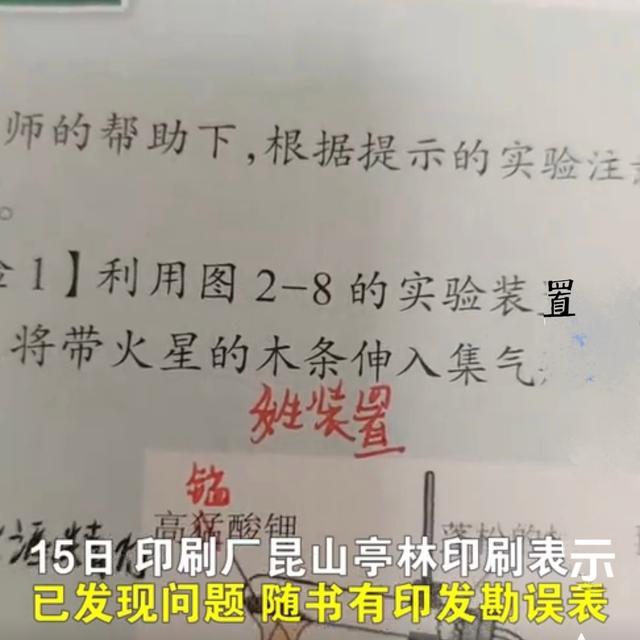 师的帮助下,根据提示的实验注
。
1】利用图2-8的实验装置
将带火星的木条伸入集气
装置
锰
高猛酸钾 蓬松的
15日 印刷厂昆山亭林印刷表示
已发现问题 随书有印发勘误表